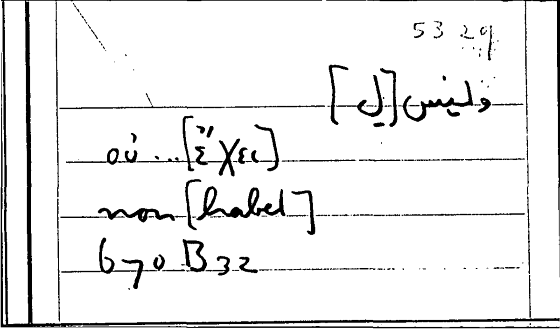 53 29
وليس [ل]
οὐ ... [ἔχει]
non [habet]
670 B 32